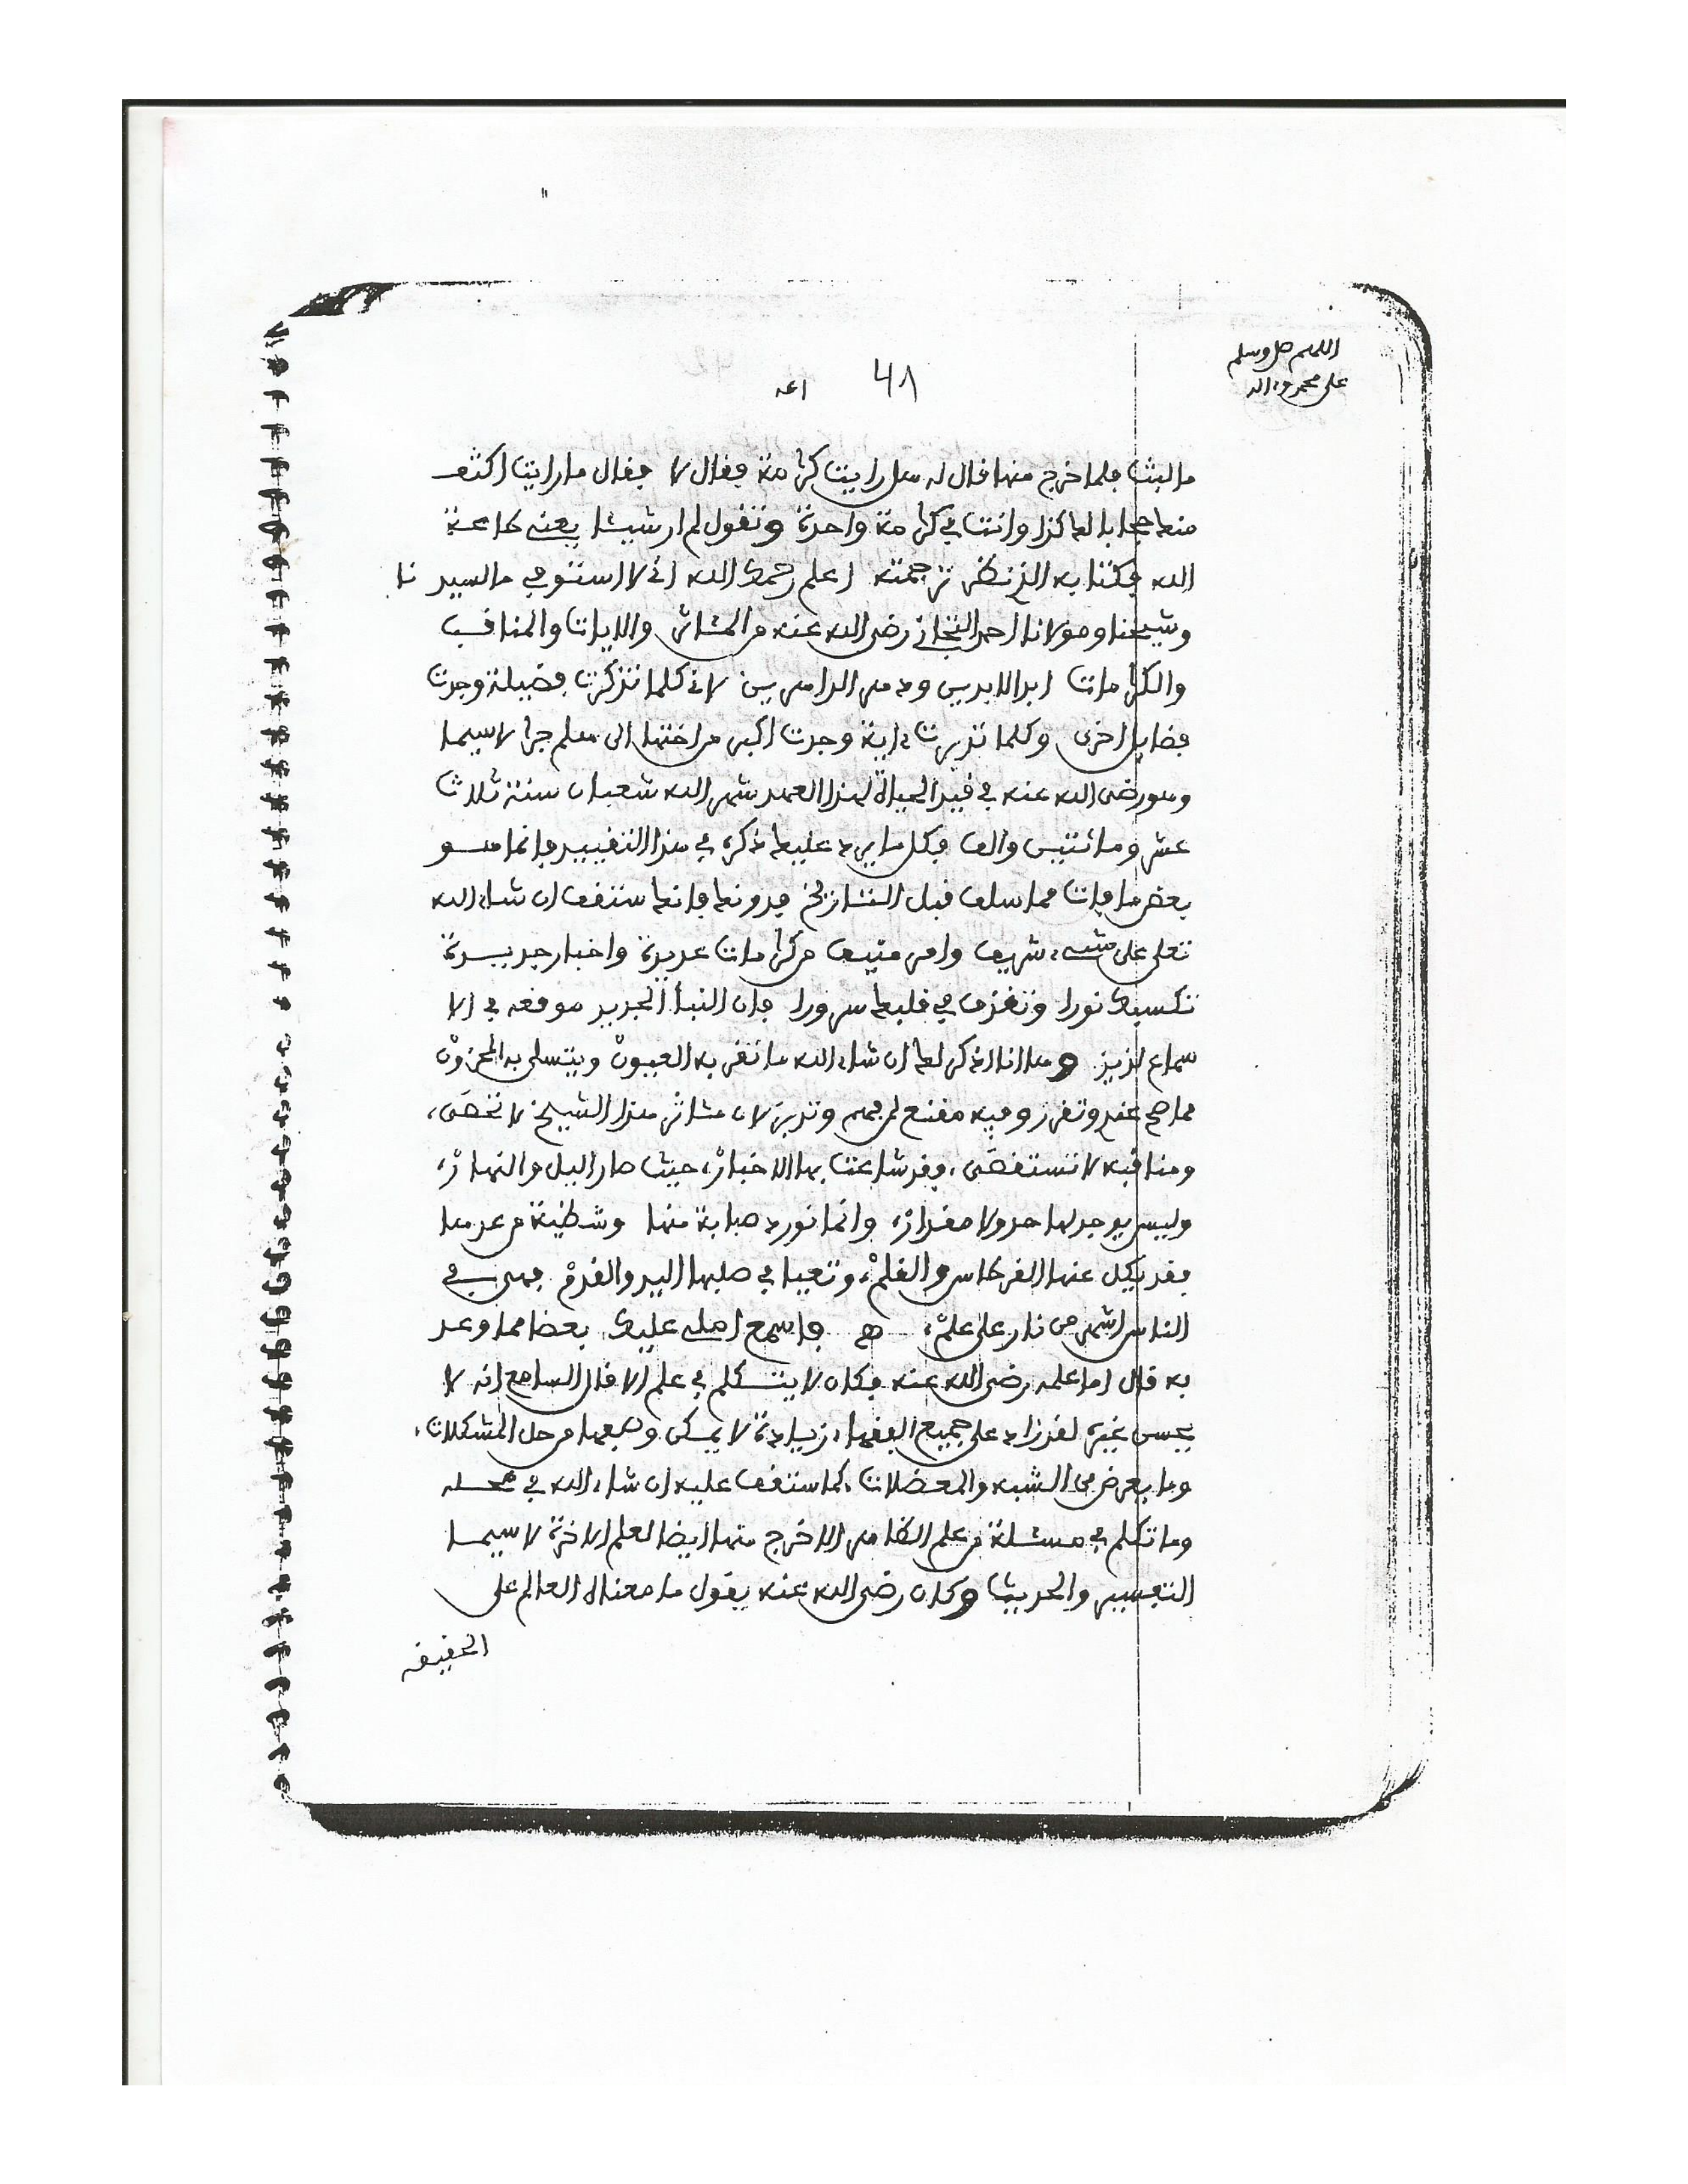 اللهم صل وسلم
على محمد وءاله
41
ما لبث فلما خرج منها قال له هل رايت كرامة فقال لا فقال ما رايت اكثف
منك حجابا لك كذا وانت في كرامة واحدة وتقول لم ار شيئا يعنى طاعة
الله فكتابه الذي نظر ترجمته اعلم رحمك الله انى لا استوفي ما لسيدنا
وشيخنا ومولانا احمد التجانى رضى الله عنه من المئاثر والايات والمناقب
والكرامات ابد الابدين ودهر الداهرين لانى كلما تذكرت فضيلة وجدت
فضايل اخرى وكلما تدبرت ءاية وجدت اكبر من اختها الى هلم جرا لا سيما
وهو رضى الله عنه في قيد الحياة لهذا العهد شهر الله شعبان سنة ثلاث
عشر ومائتين والف فكل ما يرد عليك ذكره في هذا التقييد فانما هو
بعض ما فات مما سلف قبل التاريخ فدونك فانك ستقف ان شاء الله
تعلى على شىء شريف وامر منيف من كرامات عديدة واخبار جديدة
تكسيك نورا وتقذف في قلبك سرورا فان النبأ الجديد موقعه في الا
سماع لذيذ وها انا اذكر لك ان شاء الله ما تقر به العيون ويتسلى به المحزون
مما صح عندي وتقرر وفيه مقنع لمن فهم وتدبر لان مئاثر هذا الشيخ لا تحصى،
ومناقبه لا تستقصى، وقد شاعت بها الاخبار، حيث صار اليل والنهار،
وليس يوجد لها حد ولا مقدار، وانما نورد صبابة منها وشظية من عدها
فقد يكل عنها القرطاس والقلم، وتعيا في طلبها اليد والقدم فهى في
الناس اشهر من نار على علم، هـ فاسمع امله عليك بعضا مما وعد
به قال اما علمه رضى الله عنه فكان لا يتكلم في علم الا قال السامع انه لا
يحسن غيره لقد زاد على جميع الفقهاء زيادة لا يمكن وصفها من حل المشكلات،
وما يعرض من الشبه والمعضلات كما ستقف عليه ان شاء الله في محله
وما تكلم في مسئلة من علم الظاهر الا خرج منها ايضا لعلم الاخرة لا سيما
التفسير والحديث وكان رضى الله عنه يقول ما معناه العالم على
الحقيقة